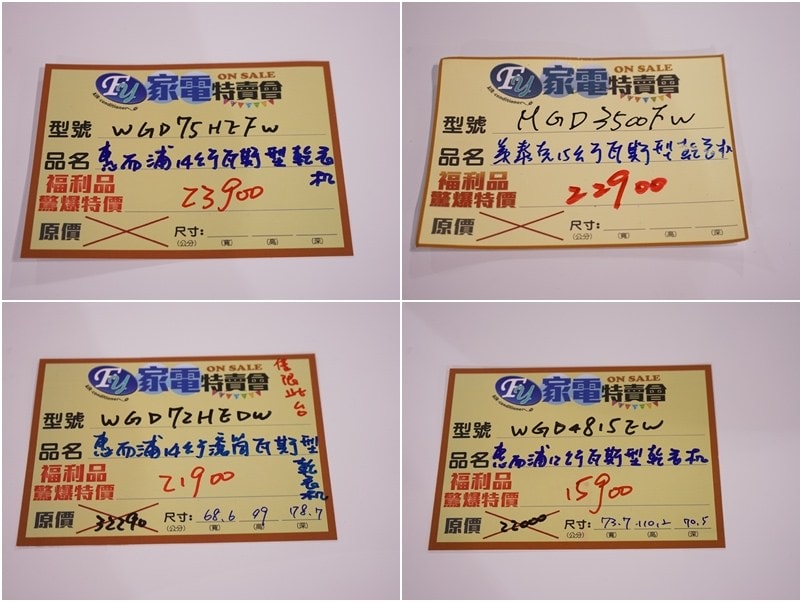 FU 家電特賣會 ON SALE
Air conditioner
型號 WGD75HEFW
品名 惠而浦14公斤瓦斯型乾衣機
福利品
驚爆特價 23900
原價 尺寸:
(公分) (寬) (高) (深)
FU 家電特賣會 ON SALE
Air conditioner
型號 MGD3500FW
品名 美泰克15公斤瓦斯型乾衣機
福利品
驚爆特價 22900
原價 尺寸:
(公分) (寬) (高) (深)
FU 家電特賣會 ON SALE
Air conditioner
僅限此台
型號 WGD72HEDW
品名 惠而浦14公斤滾筒瓦斯型乾衣機
福利品
驚爆特價 21900
原價 32290 尺寸: 68.6 99 78.7
(公分) (寬) (高) (深)
FU 家電特賣會 ON SALE
Air conditioner
型號 WGD4815EW
品名 惠而浦12公斤瓦斯型乾衣機
福利品
驚爆特價 15900
原價 22000 尺寸: 73.7 110.2 70.5
(公分) (寬) (高) (深)